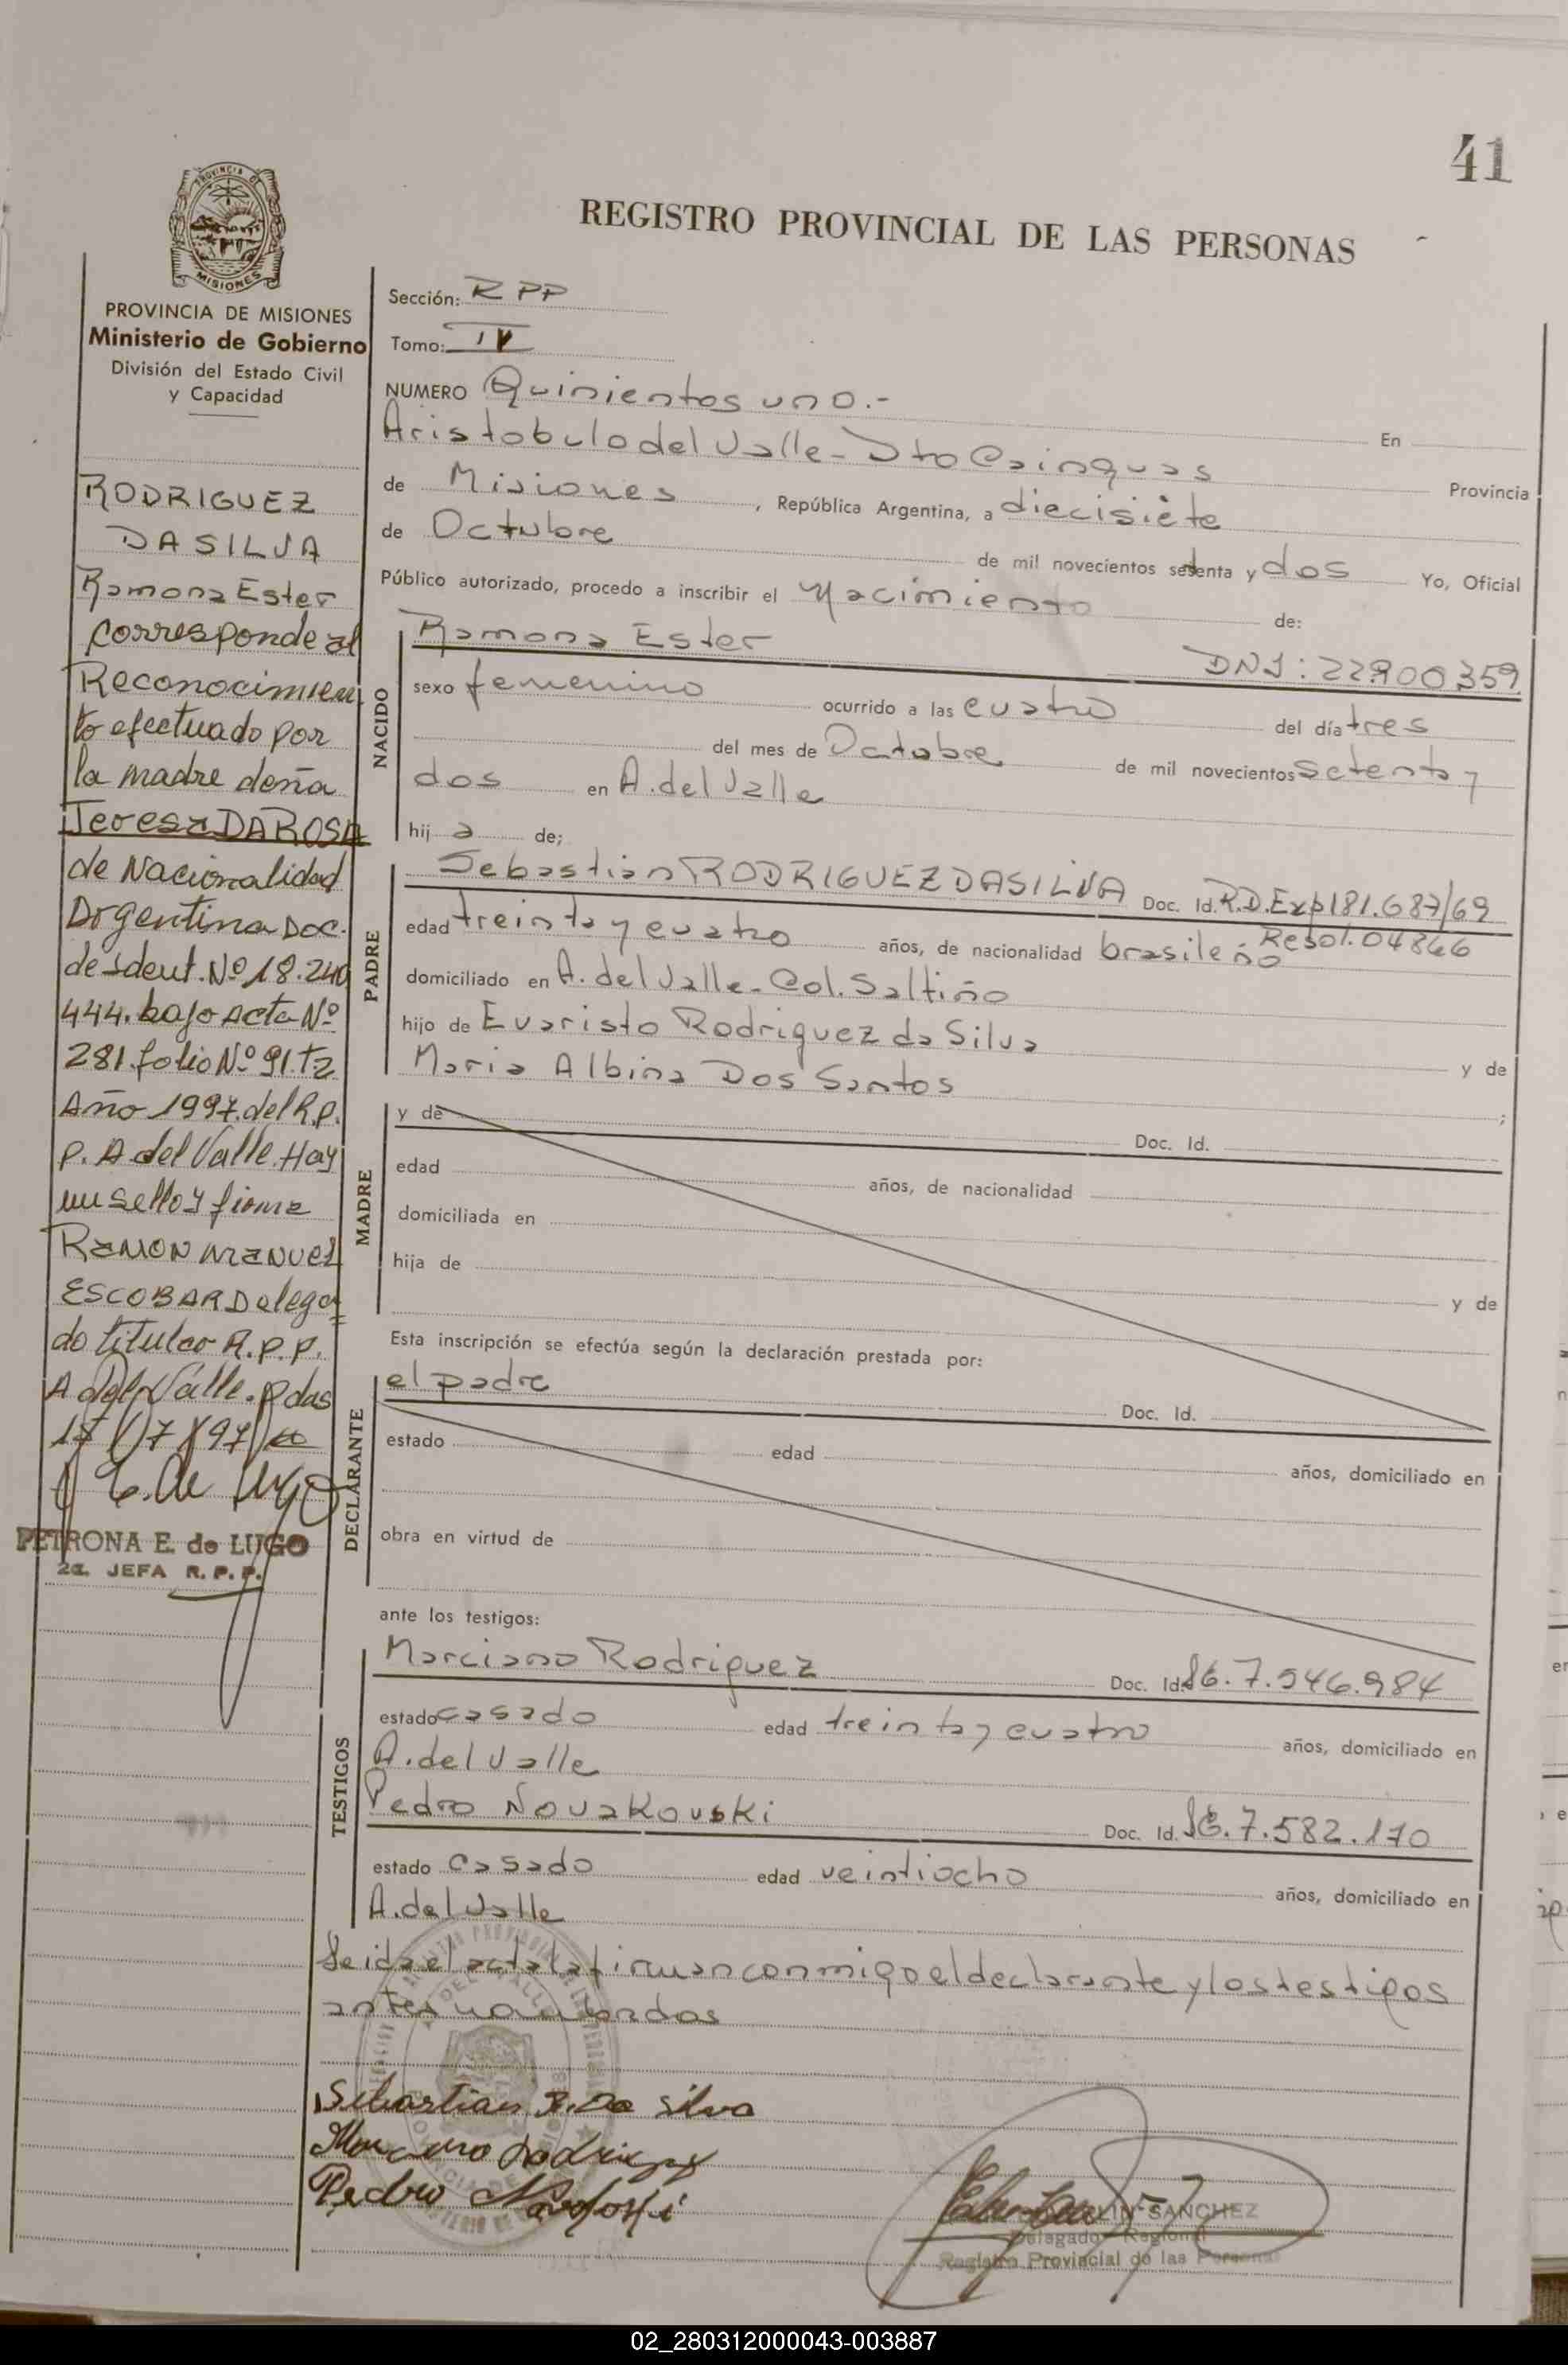 41
PROVINCIA DE
MISIONES
REGISTRO PROVINCIAL DE LAS PERSONAS
PROVINCIA DE MISIONES
Ministerio de Gobierno
División del Estado Civil
y Capacidad
RODRIGUEZ
DASILVA
Ramona Ester
corresponde al
Reconocimien
to efectuado por
la madre doña
Teresa DAROSA
de Nacionalidad
Argentina Doc.
de Ident. Nº 18.240
444. bajo Acta Nº
281. folio Nº 91. T2
Año 1997. del R.p.
p. A del Valle. Hay
un sello y firma
RAMON MANUEL
ESCOBAR Delega
do titular R.P.P.
A del Valle. Pdas
17/07/97
E. de Lugo
PETRONA E. de LUGO
2a. JEFA R.P.P.
Sección: RPP
Tomo: IV
NUMERO Quinientos uno.- En
Aristobulo del Valle - Dto Cainguas Provincia
de Misiones, República Argentina, a diecisiete
de Octubre de mil novecientos setenta y dos Yo, Oficial
Público autorizado, procedo a inscribir el Nacimiento de:
NACIDO
Ramona Ester DNI: 22.900.359
sexo femenino ocurrido a las cuatro del día tres
del mes de Octubre de mil novecientos setenta y
dos en A. del Valle
hij a de;
PADRE
Sebastián RODRIGUEZ DASILVA Doc. Id. R.D. Exp 181.687/69
Resol. 04846
edad treinta y cuatro años, de nacionalidad brasileño
domiciliado en A. del Valle - Col. Saltiño
hijo de Evaristo Rodriguez da Silva y de
Maria Albina Dos Santos ;
MADRE
y de Doc. Id.
edad años, de nacionalidad
domiciliada en
hija de y de
Esta inscripción se efectúa según la declaración prestada por:
DECLARANTE
el padre Doc. Id.
estado edad años, domiciliado en
obra en virtud de
ante los testigos:
TESTIGOS
Marciano Rodriguez Doc. Id. 7.546.984
estado casado edad treinta y cuatro años, domiciliado en
A. del Valle
Pedro Novakouski Doc. Id. 7.582.170
estado casado edad veintiocho años, domiciliado en
A. del Valle
Leida el acta la firman conmigo el declarante y los testigos
antes nombrados
Sebastian R. Da Silva
Marciano Rodriguez
Pedro
SANCHEZ
Delegado Regional
Registro Provincial de las Personas
02_280312000043-003887